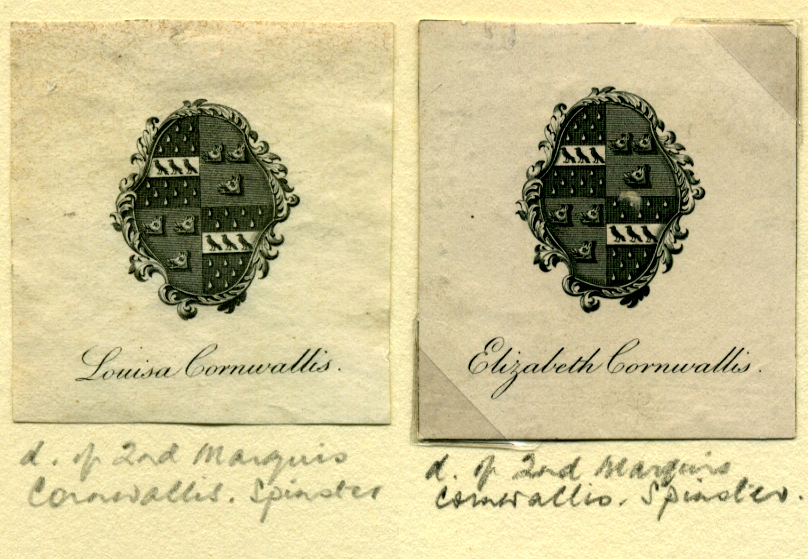 Louisa Cornwallis.
d. of 2nd Marquis
Cornwallis. Spinster
Elizabeth Cornwallis.
d. of 2nd Marquis
Cornwallis. Spinster.